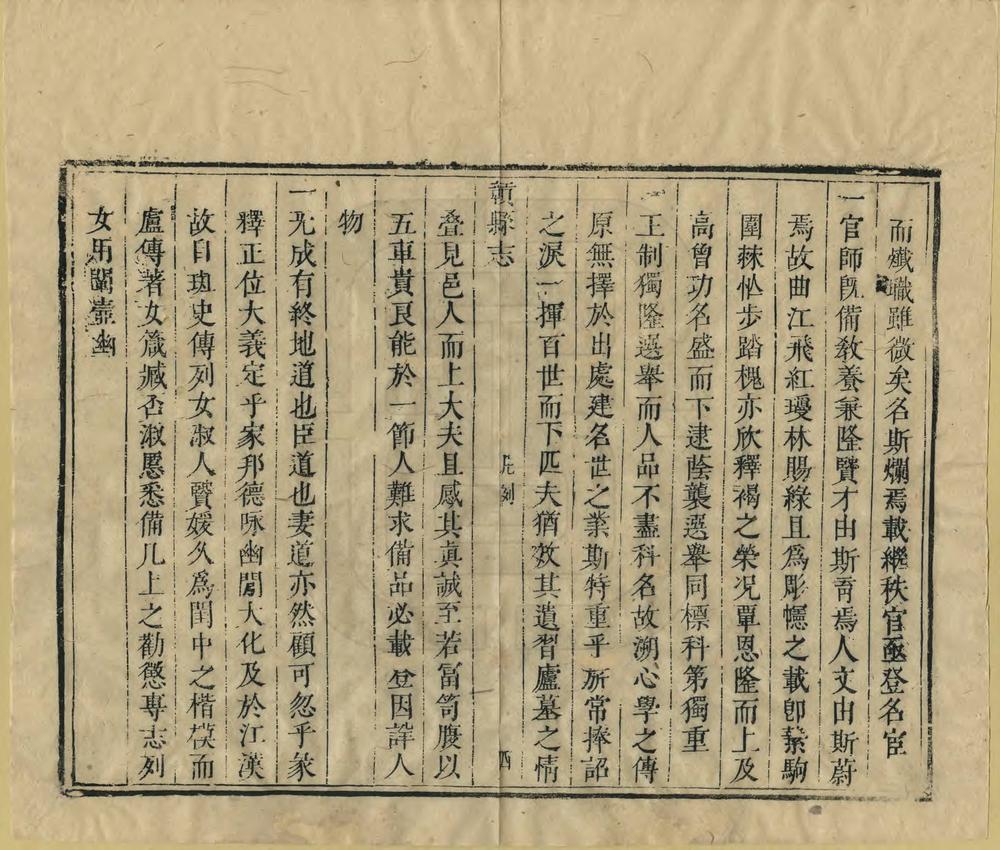 而孅職雖微矣名斯爛焉載繼秩官亟登名宦
一官師旣備教養兼隆賢才由斯育焉人文由斯蔚
焉故曲江飛紅瓊林賜綠且爲彫幰之載卽縶駒
圍棘忙步踏槐亦欣釋褐之榮况覃恩隆而上及
高曾功名盛而下逮蔭襲選舉同標科第獨重
王制獨隆選舉而人品不盡科名故溯心學之傳
原無擇於出處建名世之業斯特重乎旂常捧詔
之淚一揮百世而下匹夫猶效其遺習廬墓之情
贛縣志
凡例
四
叠見邑人而上大夫且感其眞誠至若富笥腹以
五車貴良能於一節人難求備品必載登因詳人
物
一旡成有終地道也臣道也妻道亦然顧可忽乎彖
釋正位大義定乎家邦德咏幽閒大化及於江漢
故自班史傳列女淑人賢媛久爲閨中之楷模而
盧傳著女箴臧否淑慝悉備几上之勸懲專志列
女用闡壼幽